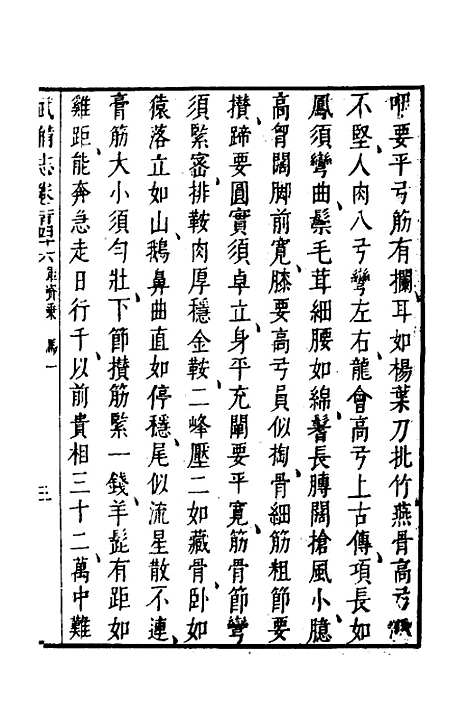 要平兮筋有攔耳如楊葉刀批竹燕骨高兮
不堅人肉八兮彎左右龍會高兮上古傳項長如
鳳須彎曲鬃毛茸細腰如綿鬐長膊闊搶風小臆
高胷闊脚前寛膝要高兮員似掬骨細筋粗節要
攅蹄要圓實須卓立身平充闊要平寛筋骨節彎
須緊密排鞍肉厚穩金鞍二峰壓二如藏骨臥如
猿落立如山鵝鼻曲直如停穩尾似流星散不連
膏筋大小須勻壯下節攅筋緊一錢羊髭有距如
雞距能奔急走日行千以前貴相三十二萬中難
武備志卷 六 馬一
三